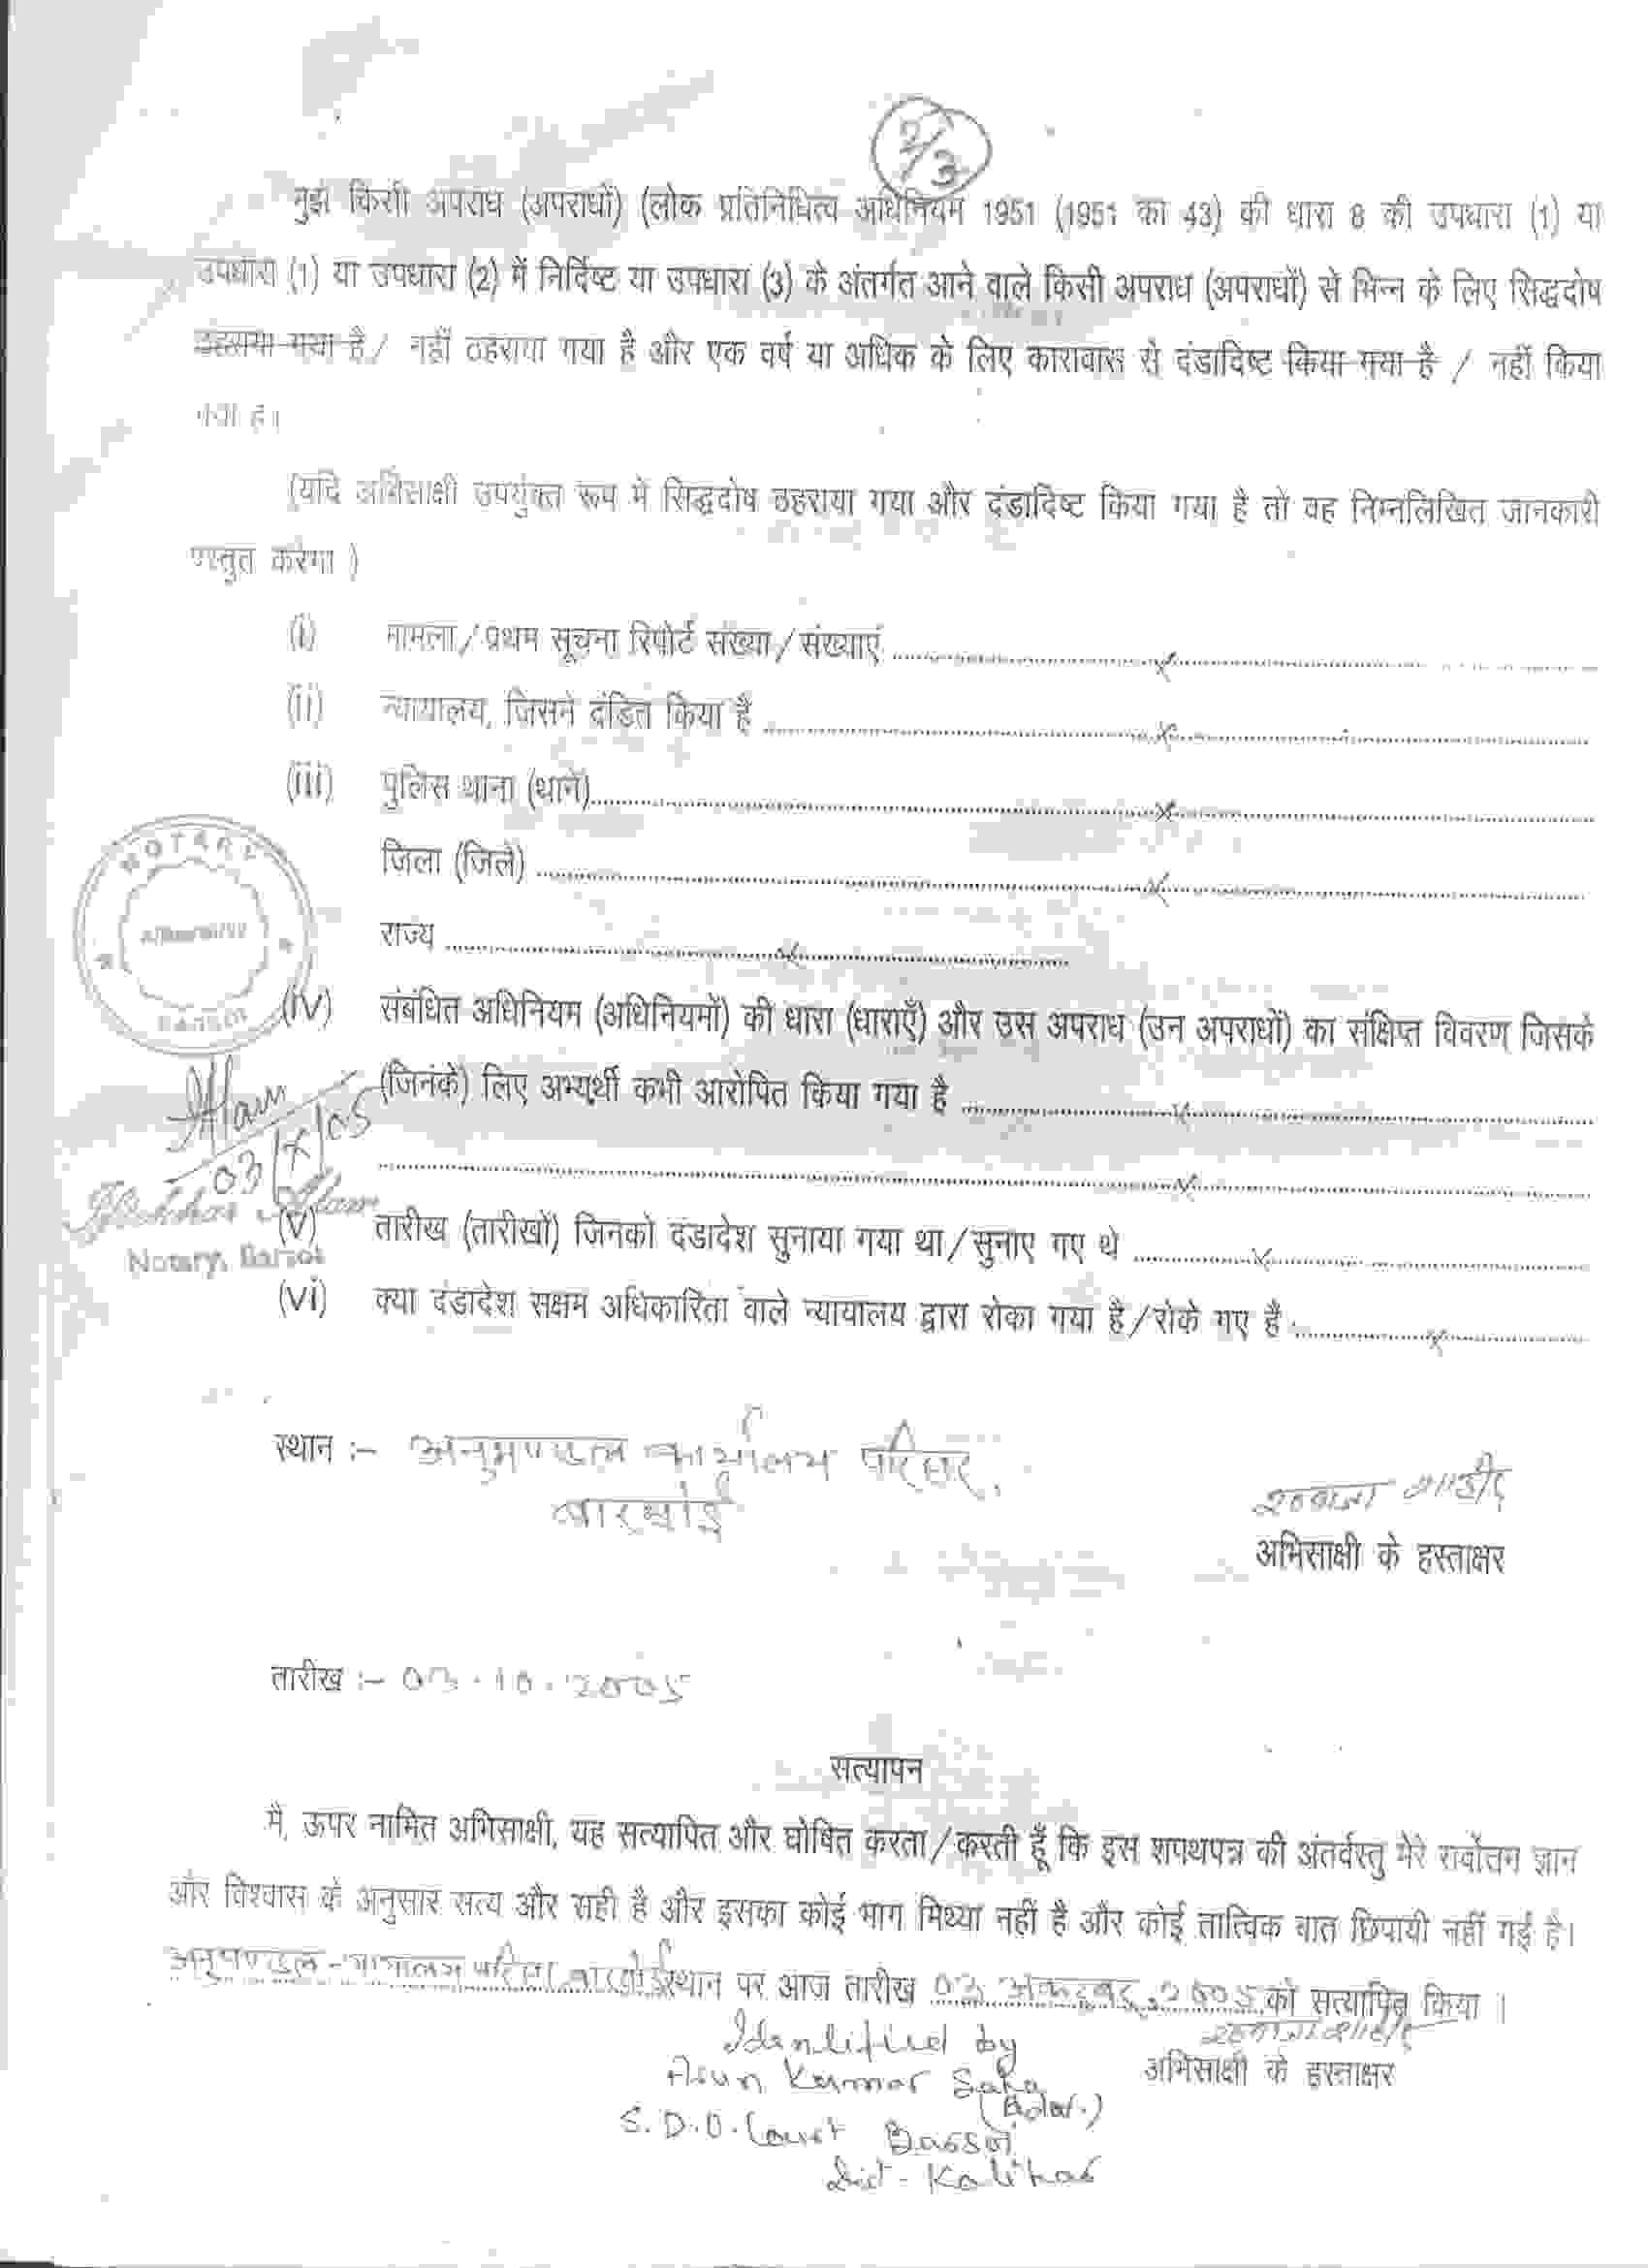 2/3
मुझे किसी अपराध (अपराधों) (लोक प्रतिनिधित्व अधिनियम 1951 (1951 का 43) की धारा 8 की उपधारा (1) या
उपधारा (1) या उपधारा (2) में निर्दिष्ट या उपधारा (3) के अंतर्गत आने वाले किसी अपराध (अपराधों) से भिन्न के लिए सिद्धदोष
ठहराया गया है / नहीं ठहराया गया है और एक वर्ष या अधिक के लिए कारावास से दंडादिष्ट किया गया है / नहीं किया
गया है।
(यदि अभिसाक्षी उपर्युक्त रूप में सिद्धदोष ठहराया गया और दंडादिष्ट किया गया है तो वह निम्नलिखित जानकारी
प्रस्तुत करेगा )
(i) मामला/प्रथम सूचना रिपोर्ट संख्या/संख्याएं ........ x ........
(ii) न्यायालय, जिसने दंडित किया है ........ x ........
(iii) पुलिस थाना (थाने) ........ x ........
जिला (जिले) ........ x ........
राज्य ........ x ........
NOTARY
BARSOI
(iv) संबंधित अधिनियम (अधिनियमों) की धारा (धाराएँ) और उस अपराध (उन अपराधों) का संक्षिप्त विवरण जिसके
(जिनके) लिए अभ्यर्थी कभी आरोपित किया गया है ........ x ........
........ x ........
Alam
03/X/05
Alam
Notary, Barsoi
(v) तारीख (तारीखों) जिनको दंडादेश सुनाया गया था/सुनाए गए थे ........ x ........
(vi) क्या दंडादेश सक्षम अधिकारिता वाले न्यायालय द्वारा रोका गया है/रोके गए हैं ........ x ........
स्थान :- अनुमण्डल कार्यालय परिसर,
बारसोई
अभिसाक्षी के हस्ताक्षर
तारीख :- 03.10.2005
सत्यापन
मैं, ऊपर नामित अभिसाक्षी, यह सत्यापित और घोषित करता/करती हूँ कि इस शपथपत्र की अंतर्वस्तु मेरे सर्वोत्तम ज्ञान
और विश्वास के अनुसार सत्य और सही है और इसका कोई भाग मिथ्या नहीं है और कोई तात्विक बात छिपायी नहीं गई है।
अनुमण्डल कार्यालय परिसर, बारसोई स्थान पर आज तारीख 03 अक्टूबर, 2005 को सत्यापित किया ।
Identified by
Arun Kumar Saha
S.D.O. Court Barsoi
Dist - Katihar
अभिसाक्षी के हस्ताक्षर